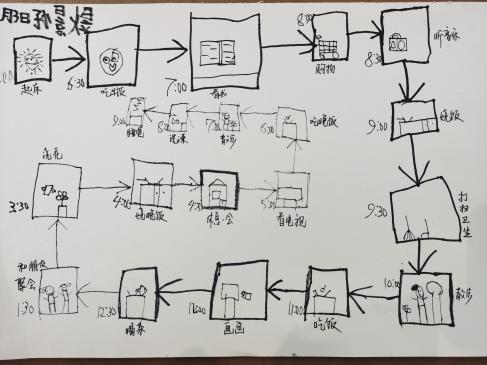 起床
6:30
吃早饭
7:00
看书
8:00
购物
8:30
听音乐
9:00
烧饭
9:30
打扫卫生
10:00
散步
11:00
吃饭
画画
12:30
喝茶
1:30
和朋友
聚会
3:30
浇花
4:00
烧晚饭
4:30
休息一会
5:30
看电视
6:30
吃晚饭
7:00
散步
8:00
洗漱
9:00
睡觉